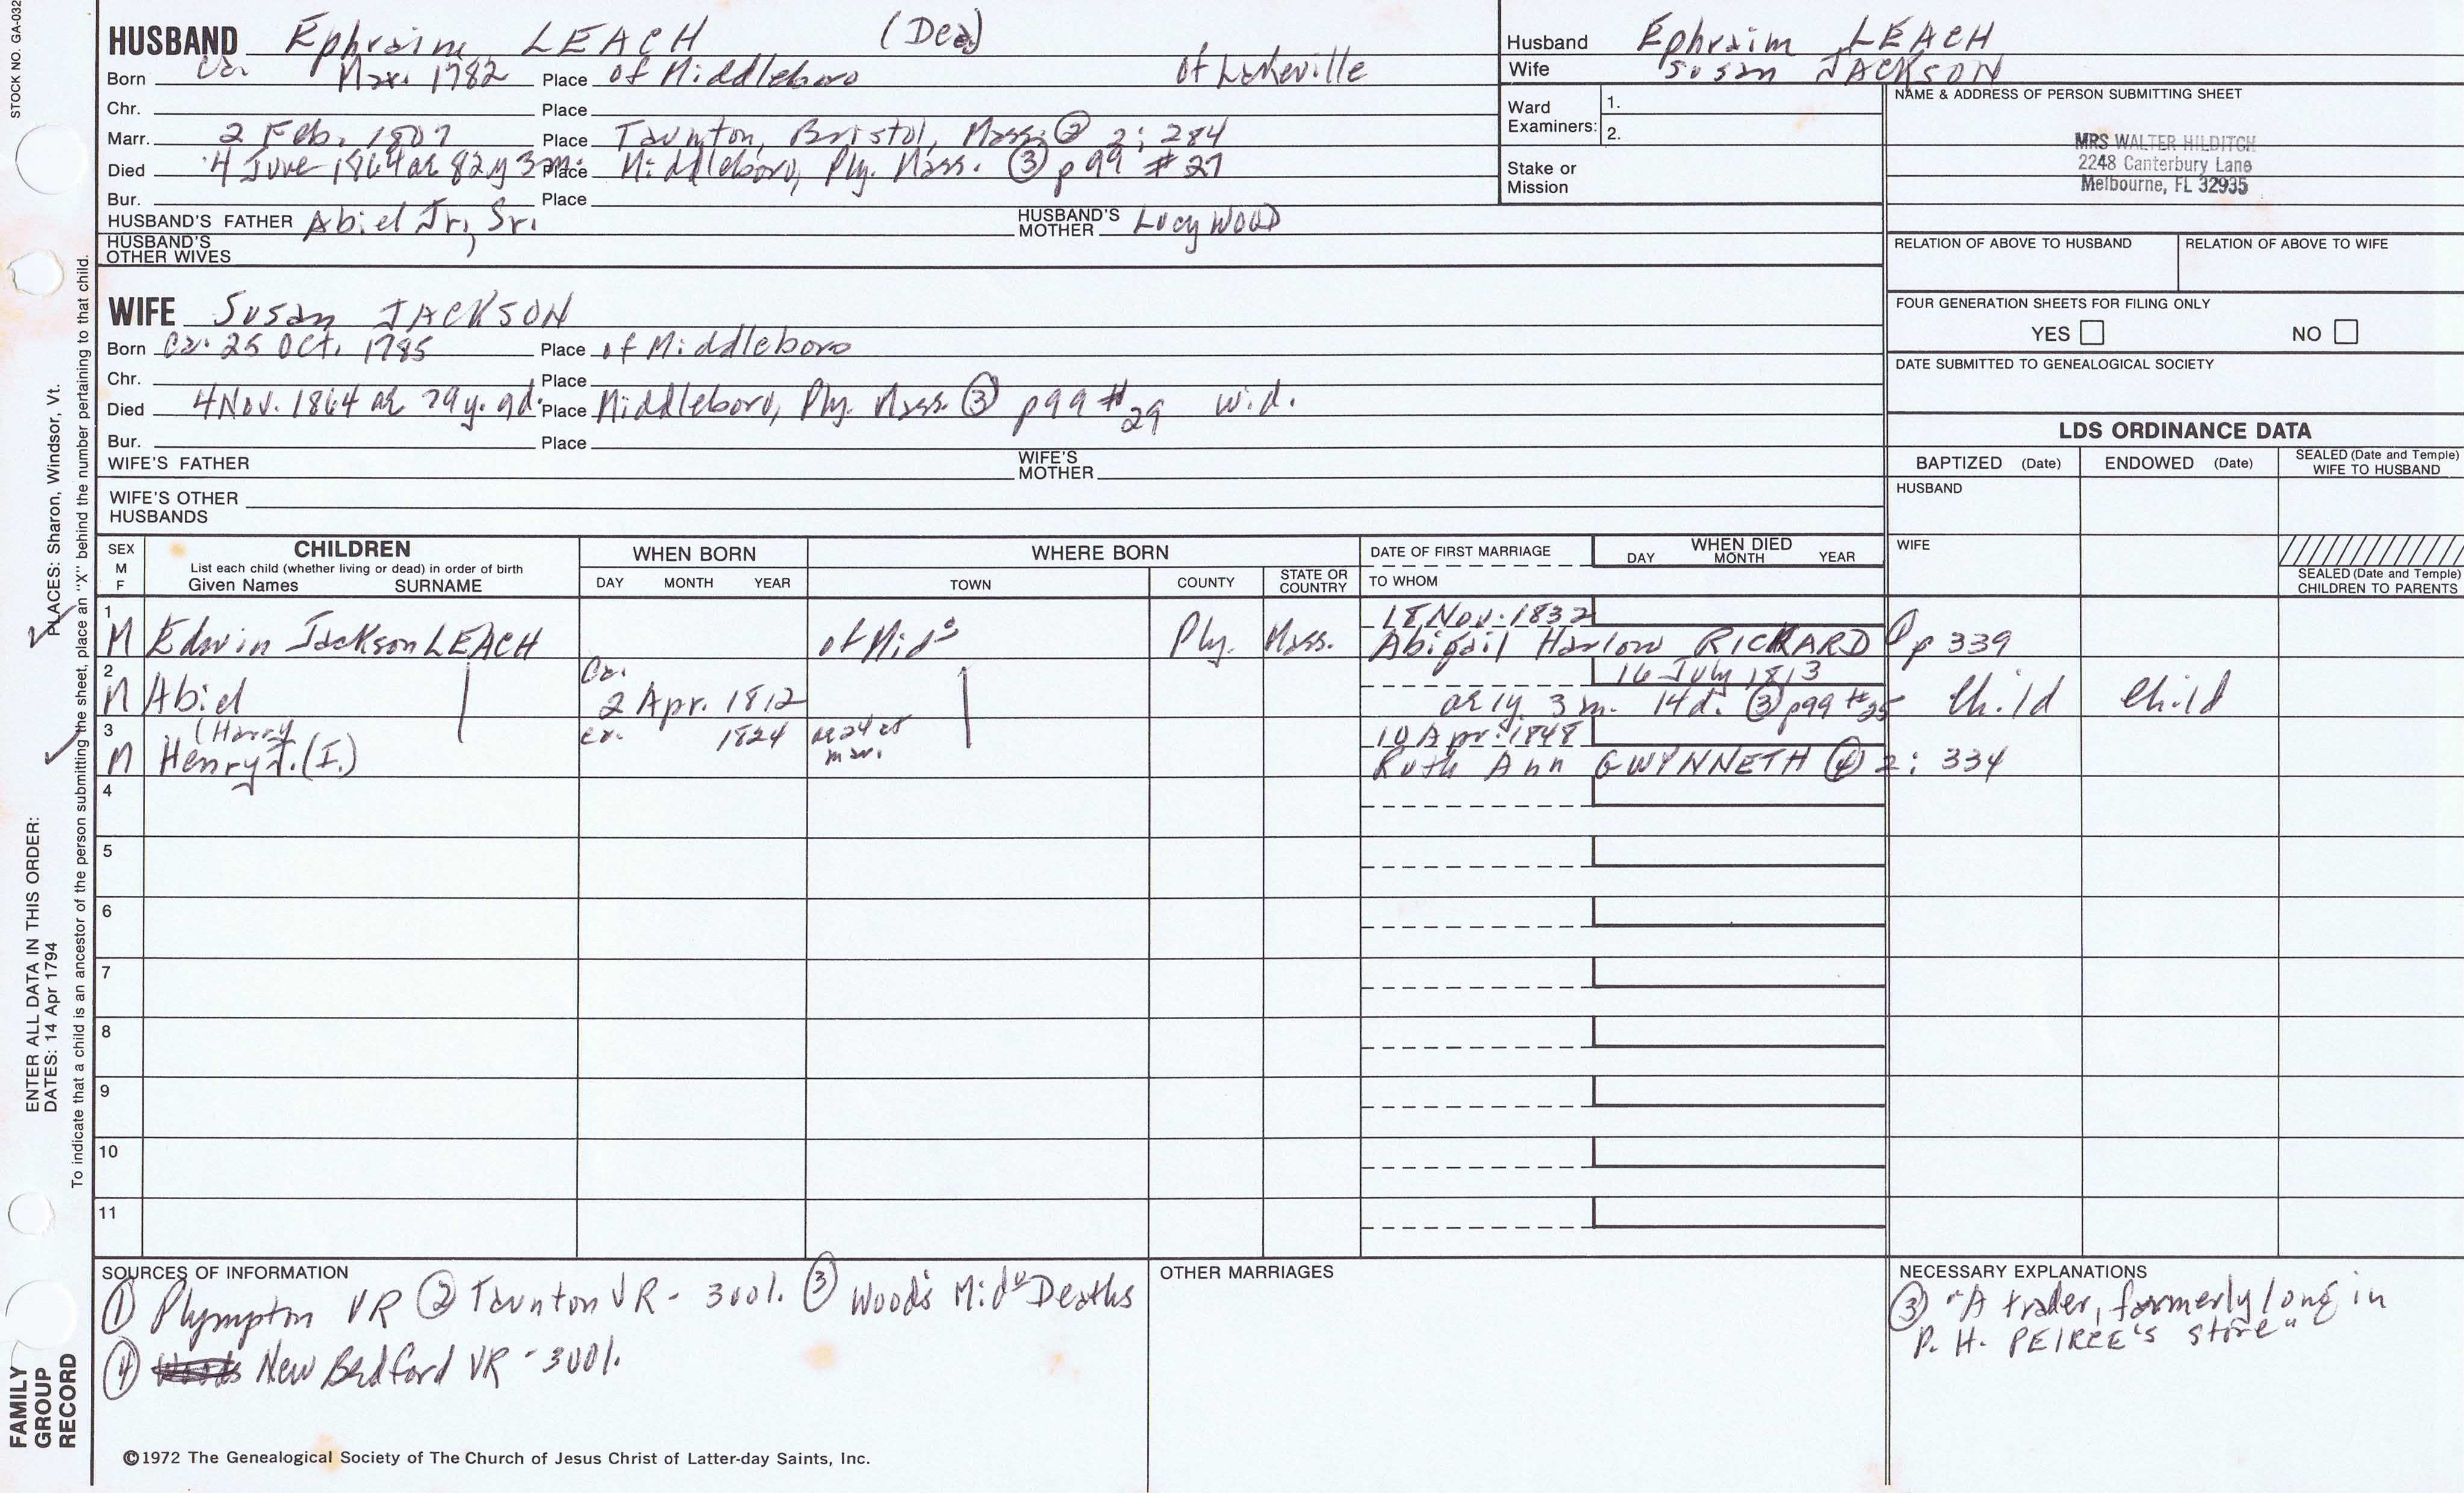 STOCK NO. GA-032
HUSBAND Ephraim LEACH (Dea)
Born Ca. Mar. 1782 Place of Middleboro of Lakeville
Chr. Place
Marr. 2 Feb. 1807 Place Taunton, Bristol, Mass. ② 2: 284
Died 4 June 1864 ae 82y 3m. Place Middleboro, Ply. Mass. ③ p99 #27
Bur. Place
HUSBAND'S FATHER Abiel Jr., Sr. HUSBAND'S MOTHER Lucy WOOD
HUSBAND'S OTHER WIVES
WIFE Susan JACKSON
Born Ca. 25 Oct. 1785 Place of Middleboro
Chr. Place
Died 4 Nov. 1864 ae 79y. 9d. Place Middleboro, Ply. Mass. ③ p99 #29 wid.
Bur. Place
WIFE'S FATHER WIFE'S MOTHER
WIFE'S OTHER HUSBANDS
Husband Ephraim LEACH
Wife Susan JACKSON
Ward Examiners: 1.
2.
Stake or Mission
NAME & ADDRESS OF PERSON SUBMITTING SHEET
MRS WALTER HILDITCH
2248 Canterbury Lane
Melbourne, FL 32935
RELATION OF ABOVE TO HUSBAND RELATION OF ABOVE TO WIFE
FOUR GENERATION SHEETS FOR FILING ONLY
YES NO
DATE SUBMITTED TO GENEALOGICAL SOCIETY
LDS ORDINANCE DATA
BAPTIZED (Date) ENDOWED (Date) SEALED (Date and Temple) WIFE TO HUSBAND
HUSBAND
WIFE
SEALED (Date and Temple) CHILDREN TO PARENTS
SEX M F
CHILDREN
List each child (whether living or dead) in order of birth
Given Names SURNAME
WHEN BORN
DAY MONTH YEAR
WHERE BORN
TOWN COUNTY STATE OR COUNTRY
DATE OF FIRST MARRIAGE
TO WHOM
WHEN DIED
DAY MONTH YEAR
1 18 Nov. 1832
M Edwin Jackson LEACH of Mid° Ply. Mass. Abigail Harlow RICKARD ① p 339
2 Ca. 16 July 1813
M Abiel 2 Apr. 1812 ae 1y. 3m. 14d. ③ p99 #25 Child Child
3 (Harry ca. 1824 ae 24 at mar. 10 Apr. 1848
M Henry J. (I.) Ruth Ann GWYNNETH ④ 2: 334
4
5
6
7
8
9
10
11
SOURCES OF INFORMATION
① Plympton VR ② Taunton VR - 3001. ③ Wood's Mid° Deaths
④ New Bedford VR - 3001.
OTHER MARRIAGES
NECESSARY EXPLANATIONS
③ "A trader, formerly long in
P. H. PEIRCE's store"
©1972 The Genealogical Society of The Church of Jesus Christ of Latter-day Saints, Inc.
FAMILY
GROUP
RECORD
ENTER ALL DATA IN THIS ORDER:
DATES: 14 Apr 1794
PLACES: Sharon, Windsor, Vt.
To indicate that a child is an ancestor of the person submitting the sheet, place an "X" behind the number pertaining to that child.